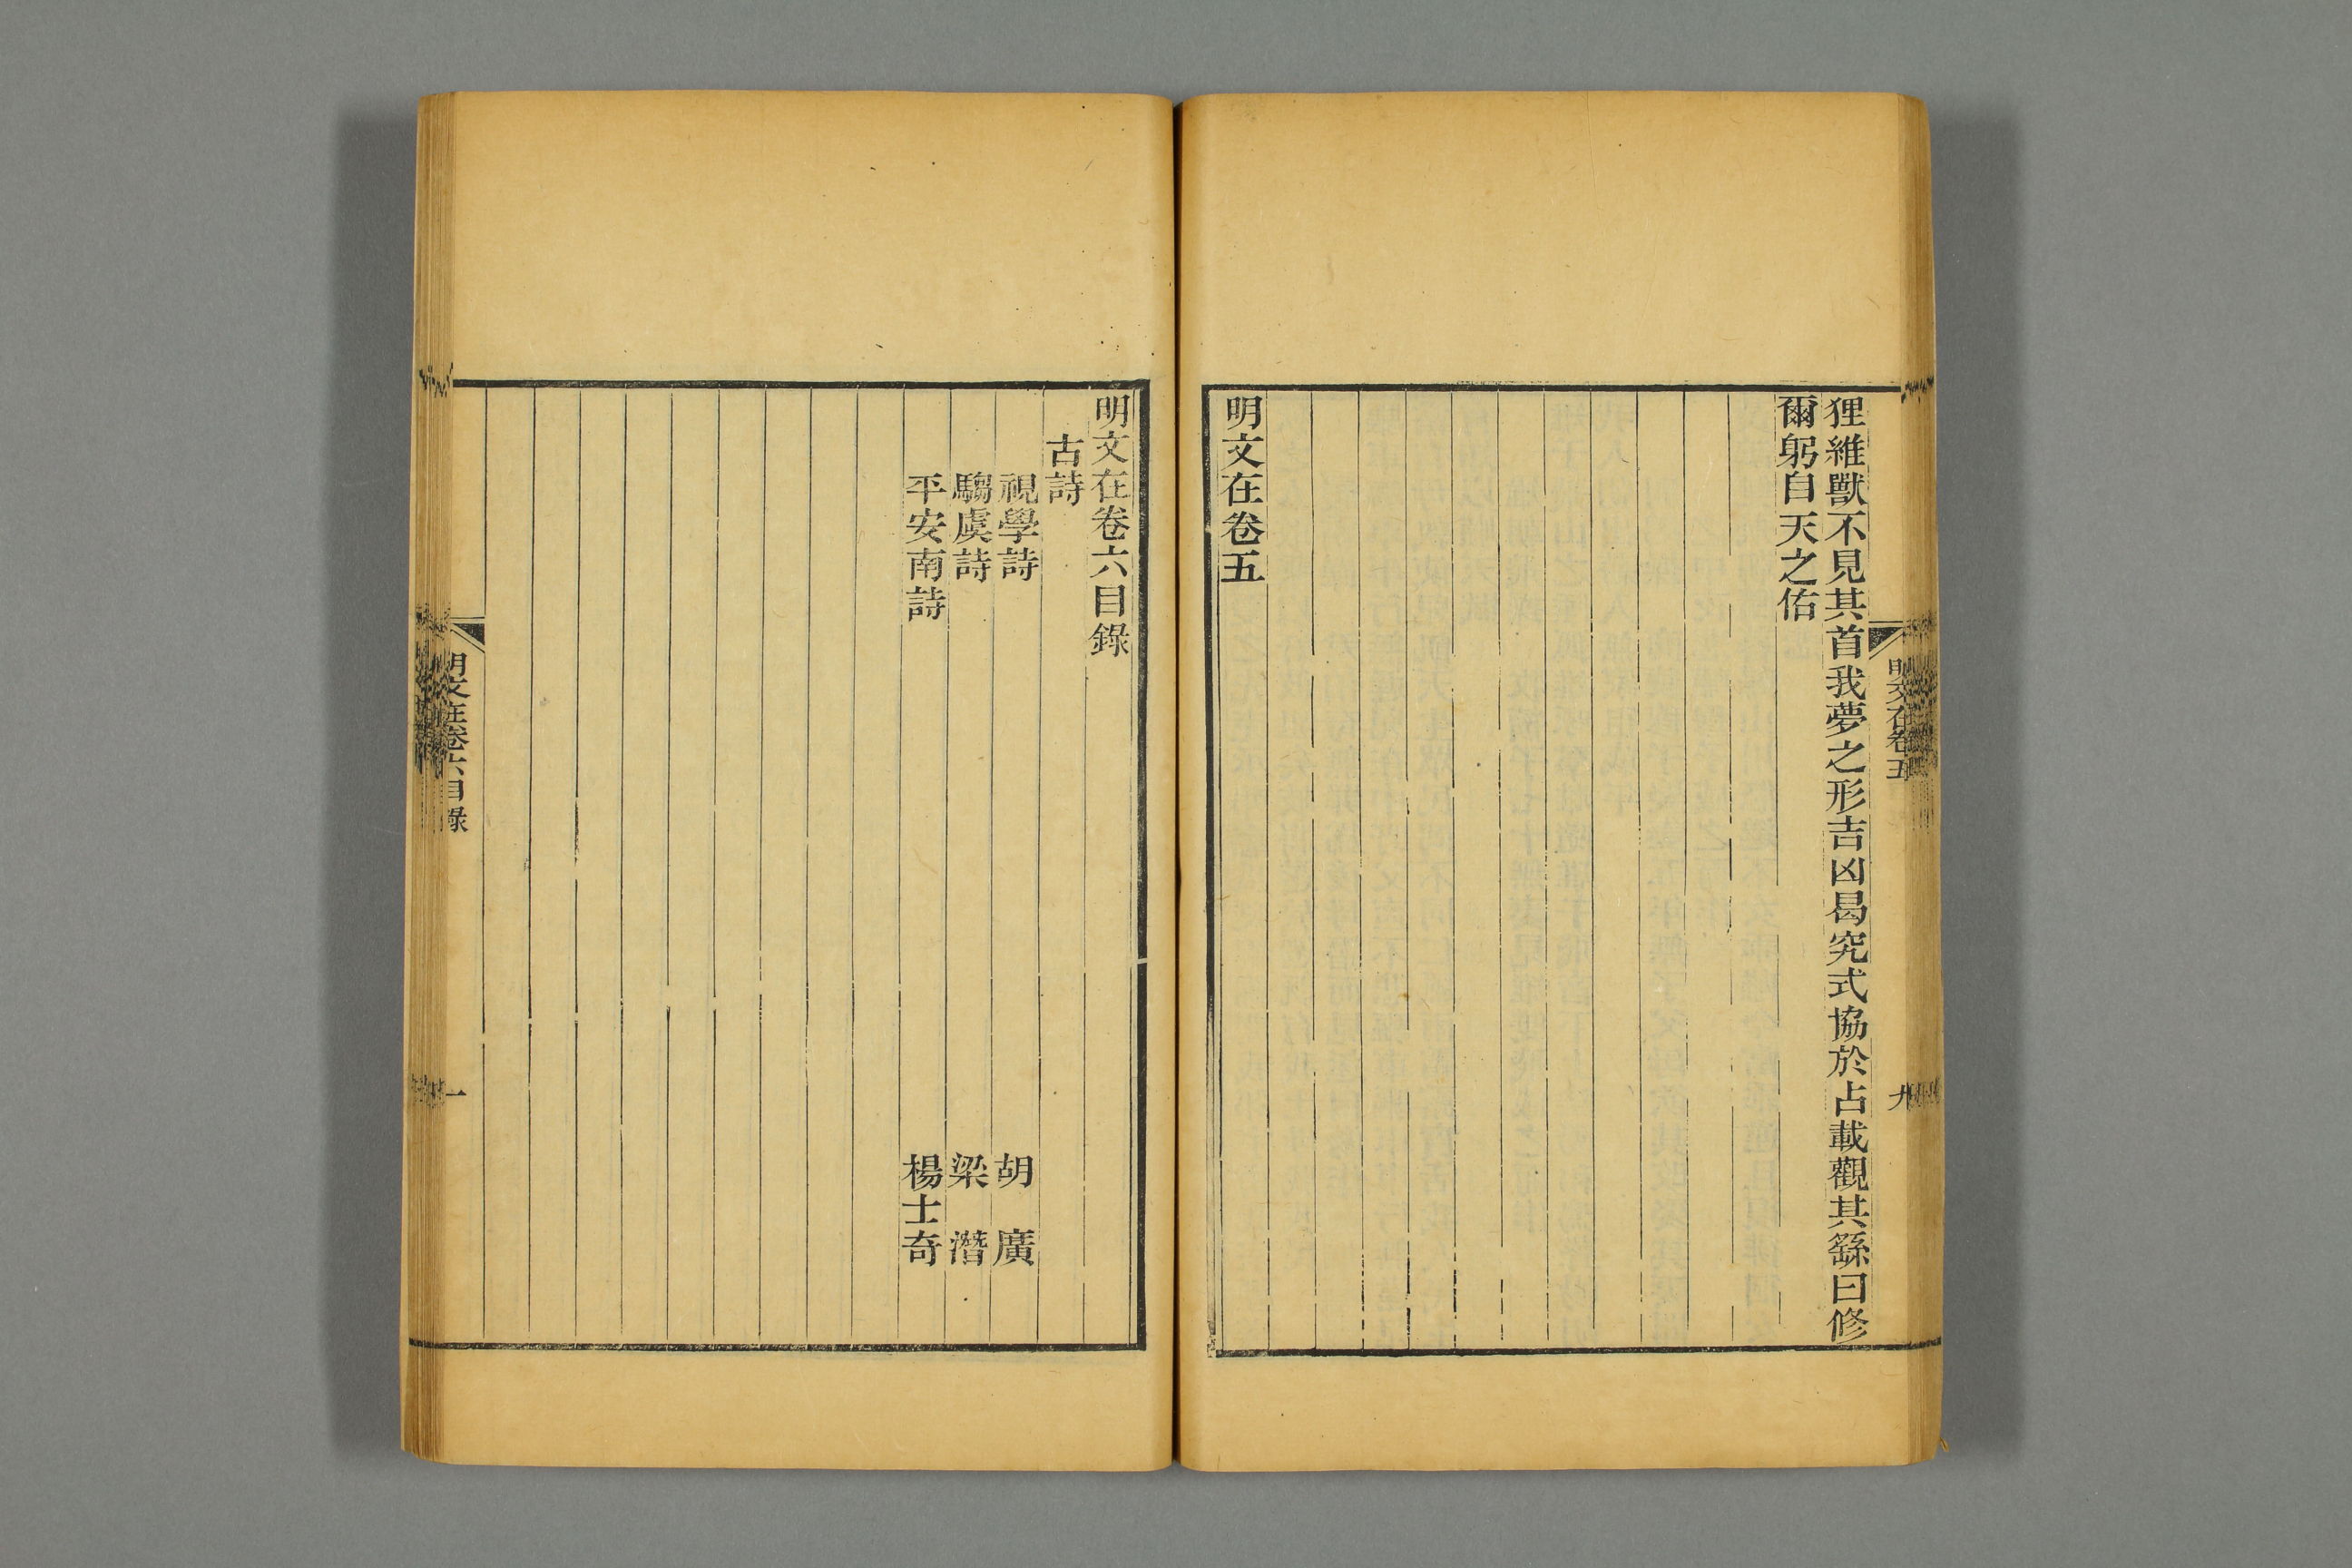 狸維獸不見其首我夢之形吉凶曷究式協於占載觀其繇曰修
爾躬自天之佑
明文在卷五
明文在卷五
九
明文在卷六目錄
古詩
視學詩　胡　廣
騶虞詩　梁　潛
平安南詩　楊士奇
明文在卷六目錄
一